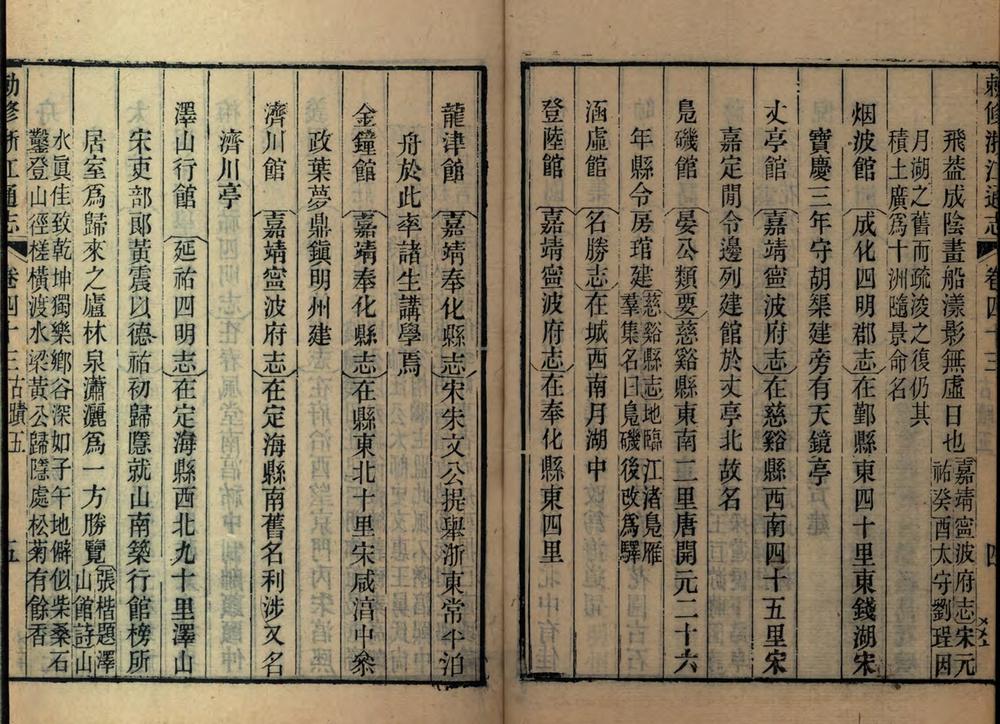 敕修浙江通志 卷四十三 古蹟五 四
飛葢成陰畫船漾影無虛日也嘉靖寧波府志宋元
祐癸酉太守劉珵因
月湖之舊而疏浚之復仍其
積土廣爲十洲隨景命名
烟波館 成化四明郡志在鄞縣東四十里東錢湖宋
寶慶三年守胡榘建旁有天鏡亭
丈亭館 嘉靖寧波府志在慈谿縣西南四十五里宋
嘉定閒令邊列建館於丈亭北故名
鳧磯館 晏公類要慈谿縣東南三里唐開元二十六
年縣令房琯建慈谿縣志地臨江渚鳧雁
羣集名曰鳧磯後改爲驛
涵虛館 名勝志在城西南月湖中
登陸館 嘉靖寧波府志在奉化縣東四里
龍津館 嘉靖奉化縣志宋朱文公提舉浙東常平泊
舟於此率諸生講學焉
金鐘館 嘉靖奉化縣志在縣東北十里宋咸淳中叅
政葉夢鼎鎭明州建
濟川館 嘉靖寧波府志在定海縣南舊名利涉又名
濟川亭
澤山行館 延祐四明志在定海縣西北九十里澤山
宋吏部郎黃震以德祐初歸隱就山南築行館榜所
居室爲歸來之廬林泉瀟灑爲一方勝覽張楷題澤
山館詩山
水眞佳致乾坤獨樂鄉谷深如子午地僻似柴桑石
鑿登山徑槎橫渡水梁黃公歸隱處松菊有餘香
敕修浙江通志 卷四十三 古蹟五 五